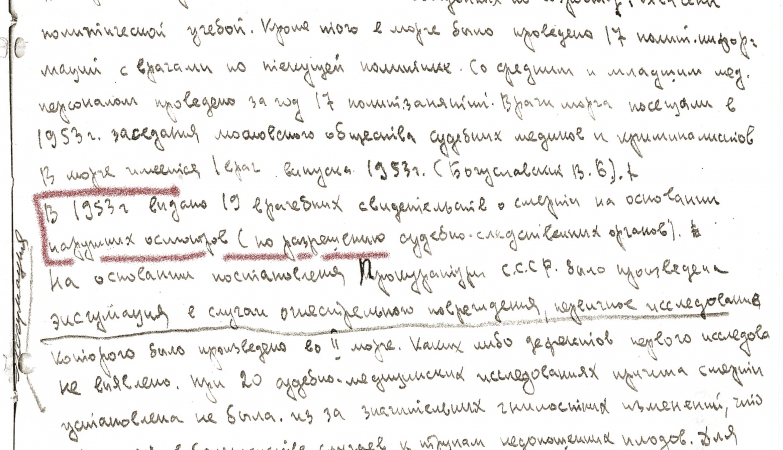 политической учебой. Кроме того в морге было проведено 17 полит.инфор
маций с врачами по текущей политике. Со средним и младшим мед.
персоналом проведено за год 17 политзанятий. Врачи морга посещали в
1953 г. заседания московского общества судебных медиков и криминалистов
В морге имеется 1 врач выпуска 1953 г. (Богуславский В. В).
В 1953 г выдано 19 врачебных свидетельств о смерти на основании
наружних осмотров (по разрешению судебно-следственных органов).
На основании постановления Прокуратуры С.С.С.Р. было произведена
эксгумация в случаи огнестрельного повреждения, первичное исследование
которого было произведено во II морге. Каких либо дефектов первого исследова
не выявлено. При 20 судебно-медицинских исследованиях причина смерти
установлена не была. из за значительных гнилостных изменений, что
случаев к трупам недоношенных плодов. Для
эксгумация